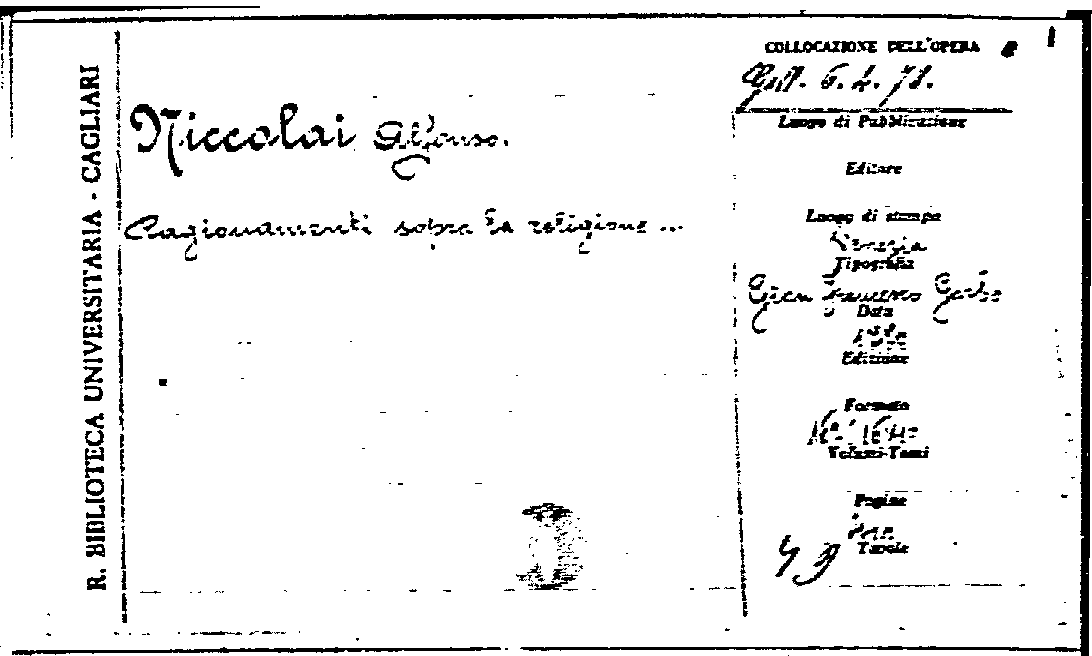 R. BIBLIOTECA UNIVERSITARIA - CAGLIARI
Niccolai Alfonso.
Ragionamenti sopra la religione ...
COLLOCAZIONE DELL'OPERA
6. 4. 78.
Luogo di Pubblicazione
Editore
Luogo di stampa
Venezia
Tipografia
Gian Francesco Garbo
Data
Edizione
Formato
Volumi-Tomi
Pagine
Tavole